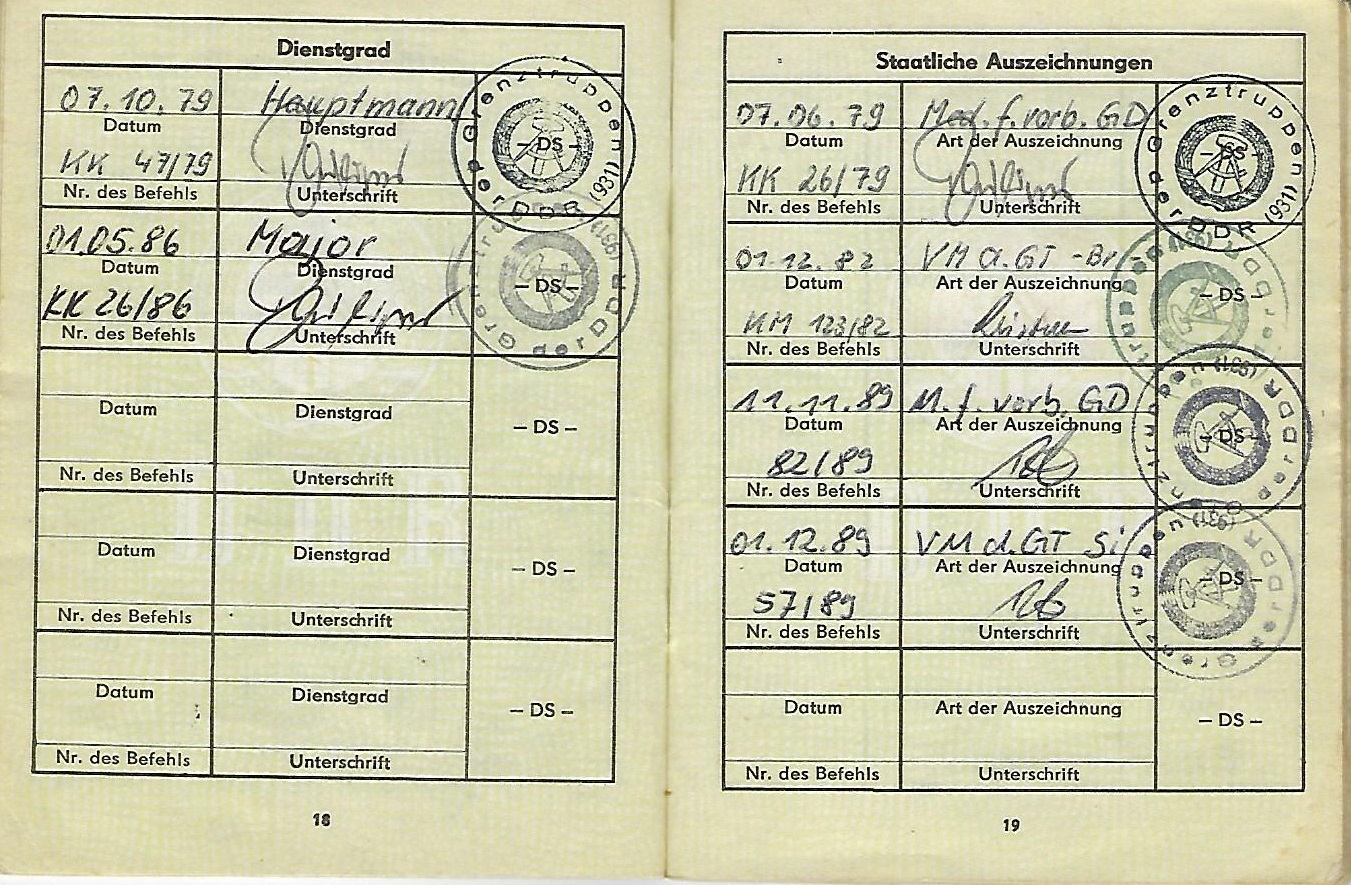 Dienstgrad
07.10.79 Hauptmann
Datum Dienstgrad
KK 47/79
Nr. des Befehls Unterschrift
– DS –
Grenztruppen der DDR (931)
01.05.86 Major
Datum Dienstgrad
KK 26/86
Nr. des Befehls Unterschrift
– DS –
Grenztruppen der DDR (931)
Datum Dienstgrad
– DS –
Nr. des Befehls Unterschrift
Datum Dienstgrad
– DS –
Nr. des Befehls Unterschrift
Datum Dienstgrad
– DS –
Nr. des Befehls Unterschrift
18
Staatliche Auszeichnungen
07.06.79 Med. f. vorb. GD
Datum Art der Auszeichnung
KK 26/79
Nr. des Befehls Unterschrift
– DS –
Grenztruppen der DDR (931)
01.12.82 VM d. GT - Br
Datum Art der Auszeichnung
KM 123/82
Nr. des Befehls Unterschrift
– DS –
Grenztruppen der DDR
11.11.89 M. f. vorb. GD
Datum Art der Auszeichnung
82/89
Nr. des Befehls Unterschrift
– DS –
Grenztruppen der DDR (931)
01.12.89 VM d. GT Si
Datum Art der Auszeichnung
57/89
Nr. des Befehls Unterschrift
– DS –
Grenztruppen der DDR (931)
Datum Art der Auszeichnung
– DS –
Nr. des Befehls Unterschrift
19